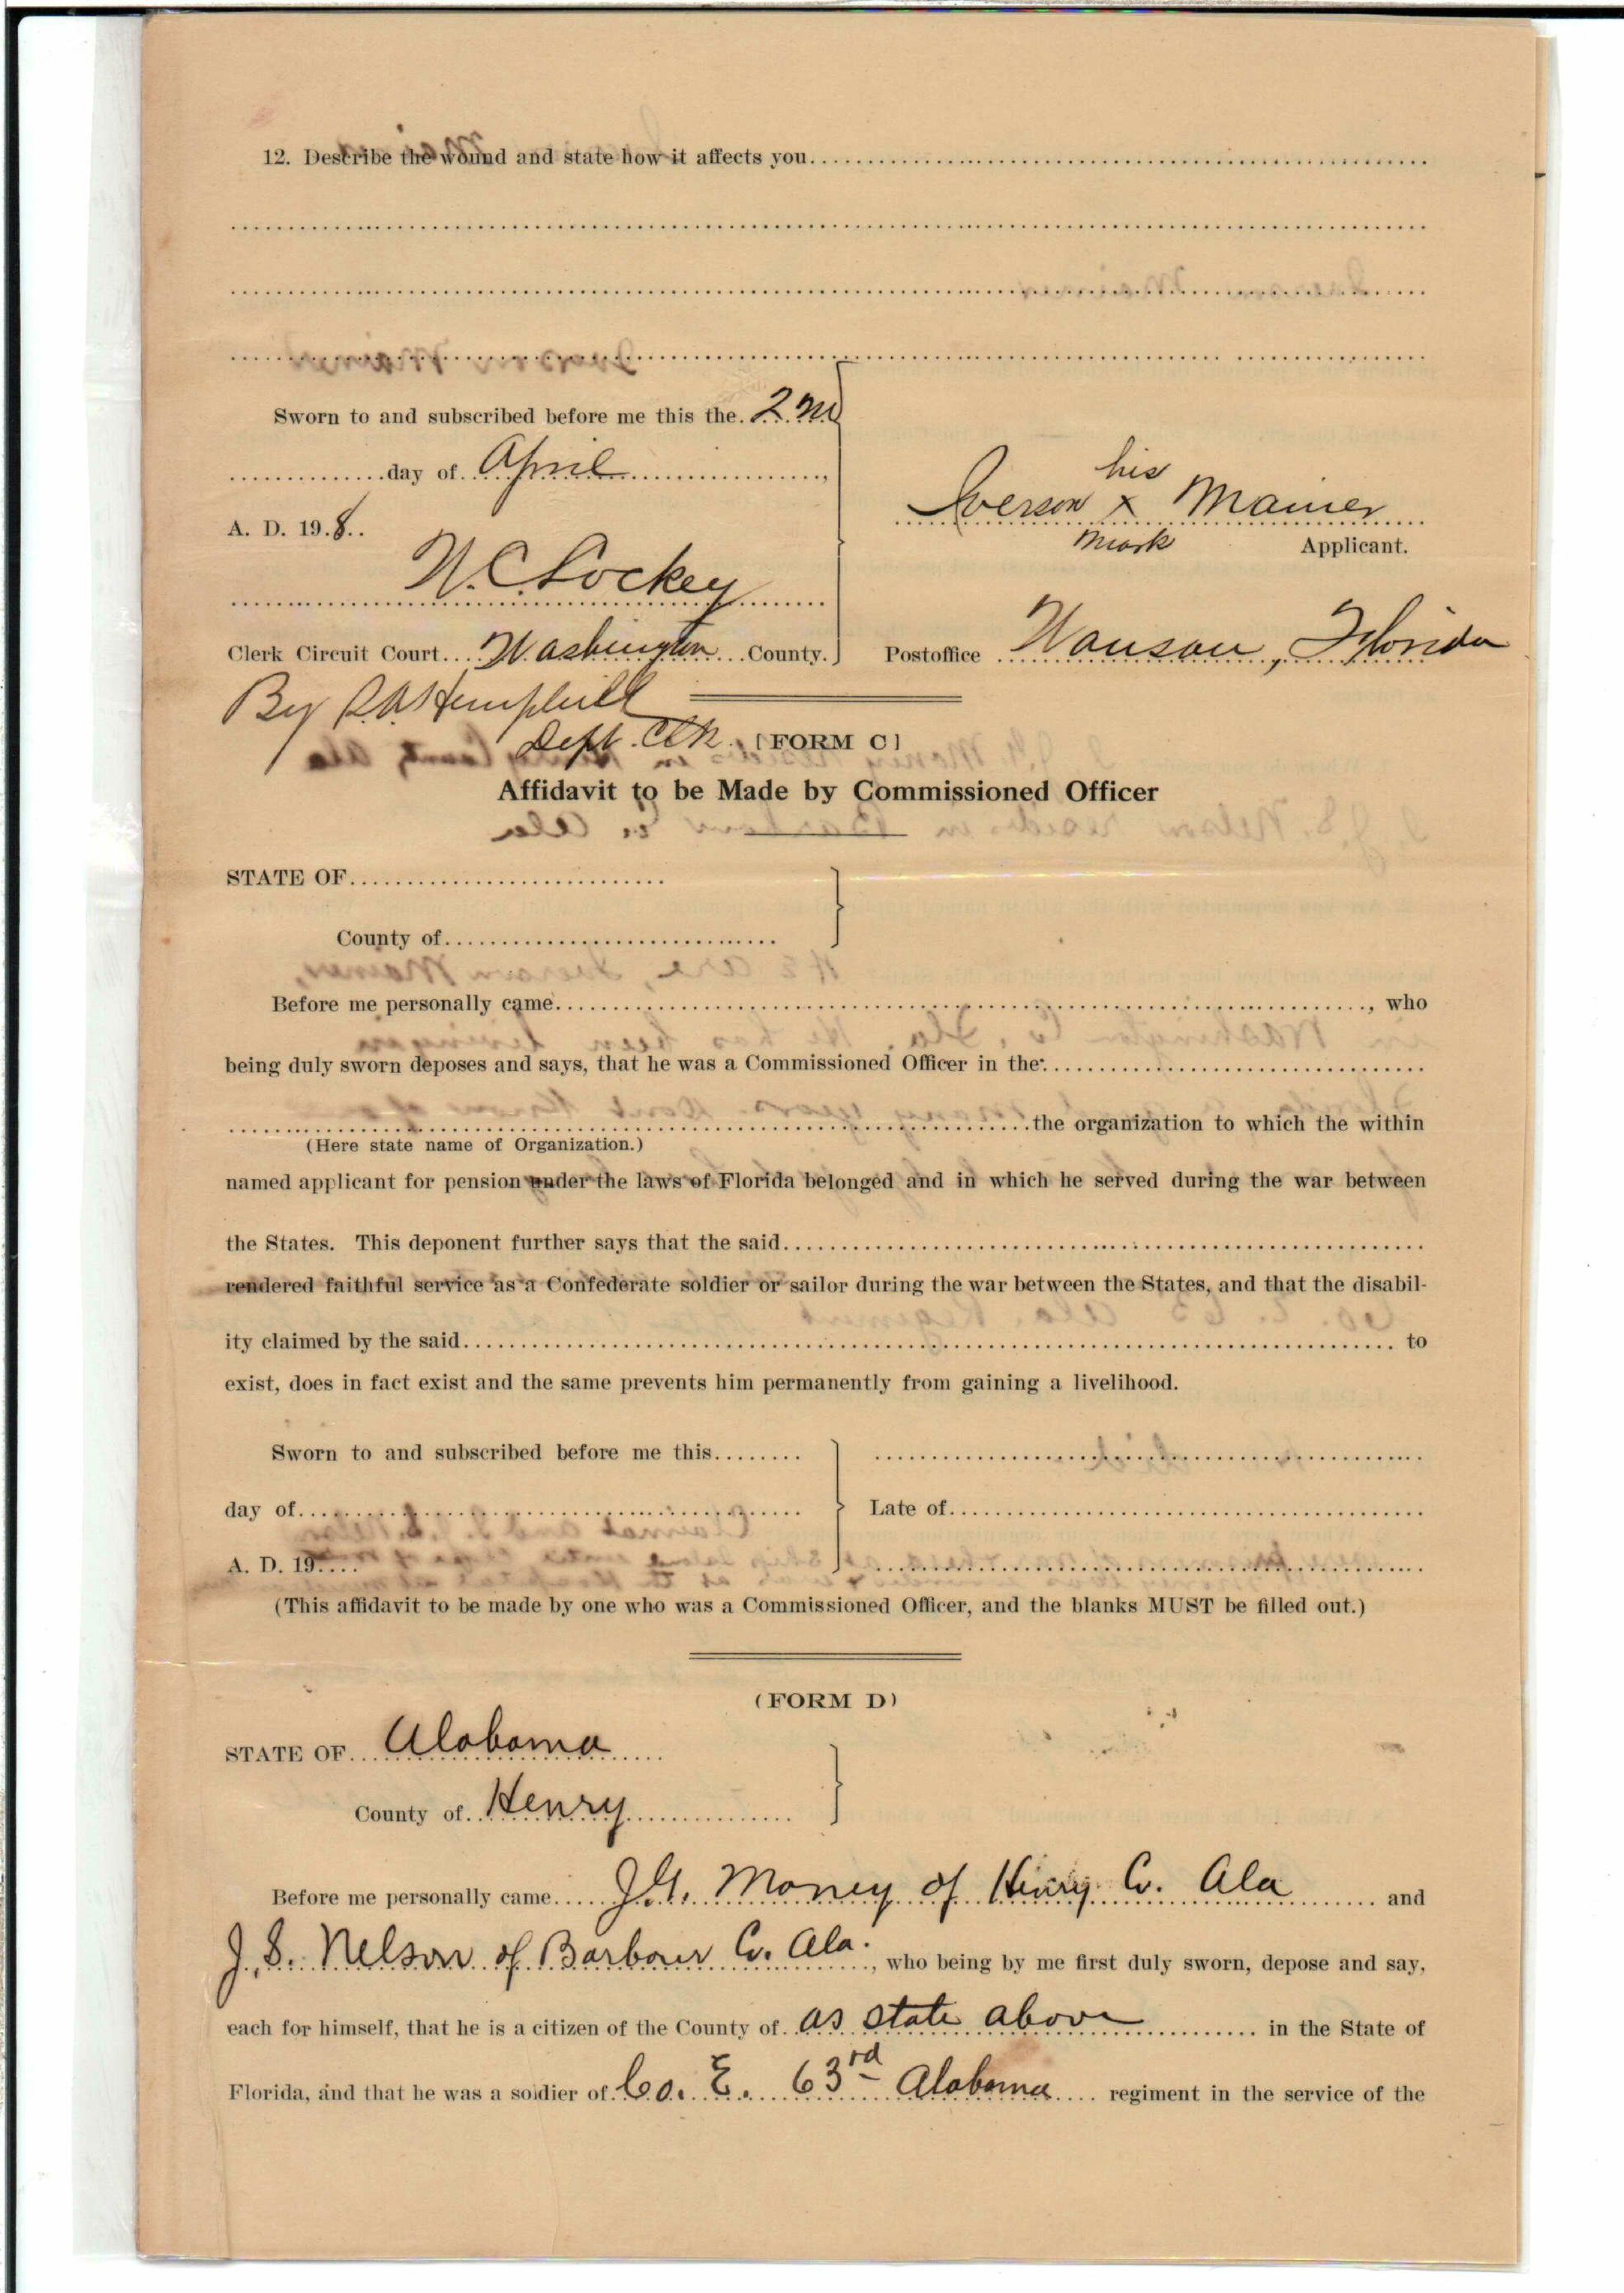 12. Describe the wound and state how it affects you
Sworn to and subscribed before me this the 2nd
day of April
A. D. 19 8
his
Iverson x Mainer
mark
Applicant.
W. C. Lockey
Clerk Circuit Court Washington County.
Postoffice Wausau, Florida
By R.A. Hemphill
Dept. Clk.
[FORM C]
Affidavit to be Made by Commissioned Officer
STATE OF
County of
Before me personally came, who
being duly sworn deposes and says, that he was a Commissioned Officer in the
the organization to which the within
(Here state name of Organization.)
named applicant for pension under the laws of Florida belonged and in which he served during the war between
the States. This deponent further says that the said
rendered faithful service as a Confederate soldier or sailor during the war between the States, and that the disabil-
ity claimed by the said to
exist, does in fact exist and the same prevents him permanently from gaining a livelihood.
Sworn to and subscribed before me this
day of
Late of
A. D. 19
(This affidavit to be made by one who was a Commissioned Officer, and the blanks MUST be filled out.)
(FORM D)
STATE OF Alabama
County of Henry
Before me personally came J.G. Money of Henry Co. Ala and
J. S. Nelson of Barbour Co. Ala., who being by me first duly sworn, depose and say,
each for himself, that he is a citizen of the County of as state above in the State of
Florida, and that he was a soldier of Co. E. 63rd Alabama regiment in the service of the